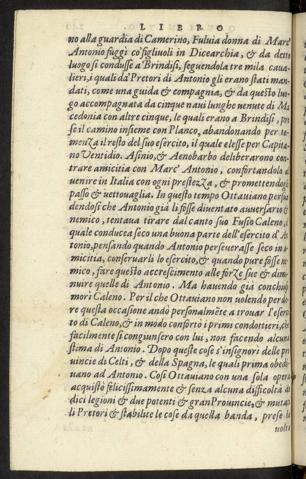 LIBRO
no alla guardia di Camerino, Fuluia donna di Marc'
Antonio fuggi co figliuoli in Dicearchia, & da detto
luogo si condusse a' Brindisi, seguendola tre mila caua
lieri, i quali da' Pretori di Antonio gli erano stati man
dati, come una guida & compagnia, & da questo luo
go accompagnata da cinque naui lunghe uenute di Ma
cedonia con altre cinque, le quali erano a Brindisi, pre
se il camino insieme con Planco, abandonando per te
menza il resto del suo esercito, il quale elesse per Capita
no Ventidio. Asinio, & Aenobarbo deliberarono con
trare amicitia con Marc' Antonio, confortandolo a
uenire in Italia con ogni prestezza, & promettendogli
passo & uettouaglia. In questo tempo Ottauiano persua
dendosi che Antonio già li fosse diuentato auuersario &
nemico, tentaua tirare dal canto suo Fusio Caleno, il
quale conducea seco una buona parte dell'esercito d'An
tonio, pensando quando Antonio perseuerasse seco in a
micitia, conseruarli lo esercito, & quando pure fosse ne
mico, fare questo accrescimento alle forze sue & dimi
nuire quelle di Antonio. Ma hauendo già conchiuso
morì Caleno. Per il che Ottauiano non uolendo perde
re questa occasione andò personalmēte a trouar l'eserci
to di Caleno, & in modo confortò i primi condottieri, che
facilmente si congiunsero con lui, non facendo alcuna
stima di Antonio. Dopo queste cose s'insignorì delle pro
uincie di Celti, & della Spagna, le quali prima obedi
uano ad Antonio. Così Ottauiano con una sola opera
acquistò felicissimamente & senza alcuna difficoltà un
dici legioni & due potenti & gran Prouincie, & mutati
li Pretori & stabilite le cose da quella banda, prese la
uolta